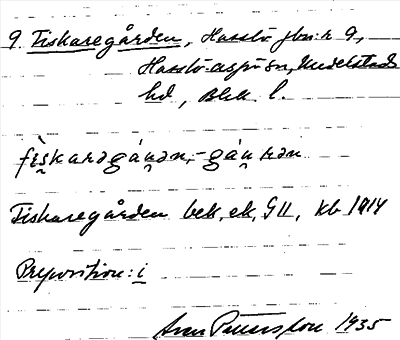 9. Fiskaregården, Hasslö jbn:r 9,
Hasslö-aspö sn, Medelstads
hd, Blek. l.
fìskarəgáṇən, -gáṇ
Fiskaregården bek, ek, GII, kb 1914
Preposition: i
Sven Petersson 1935